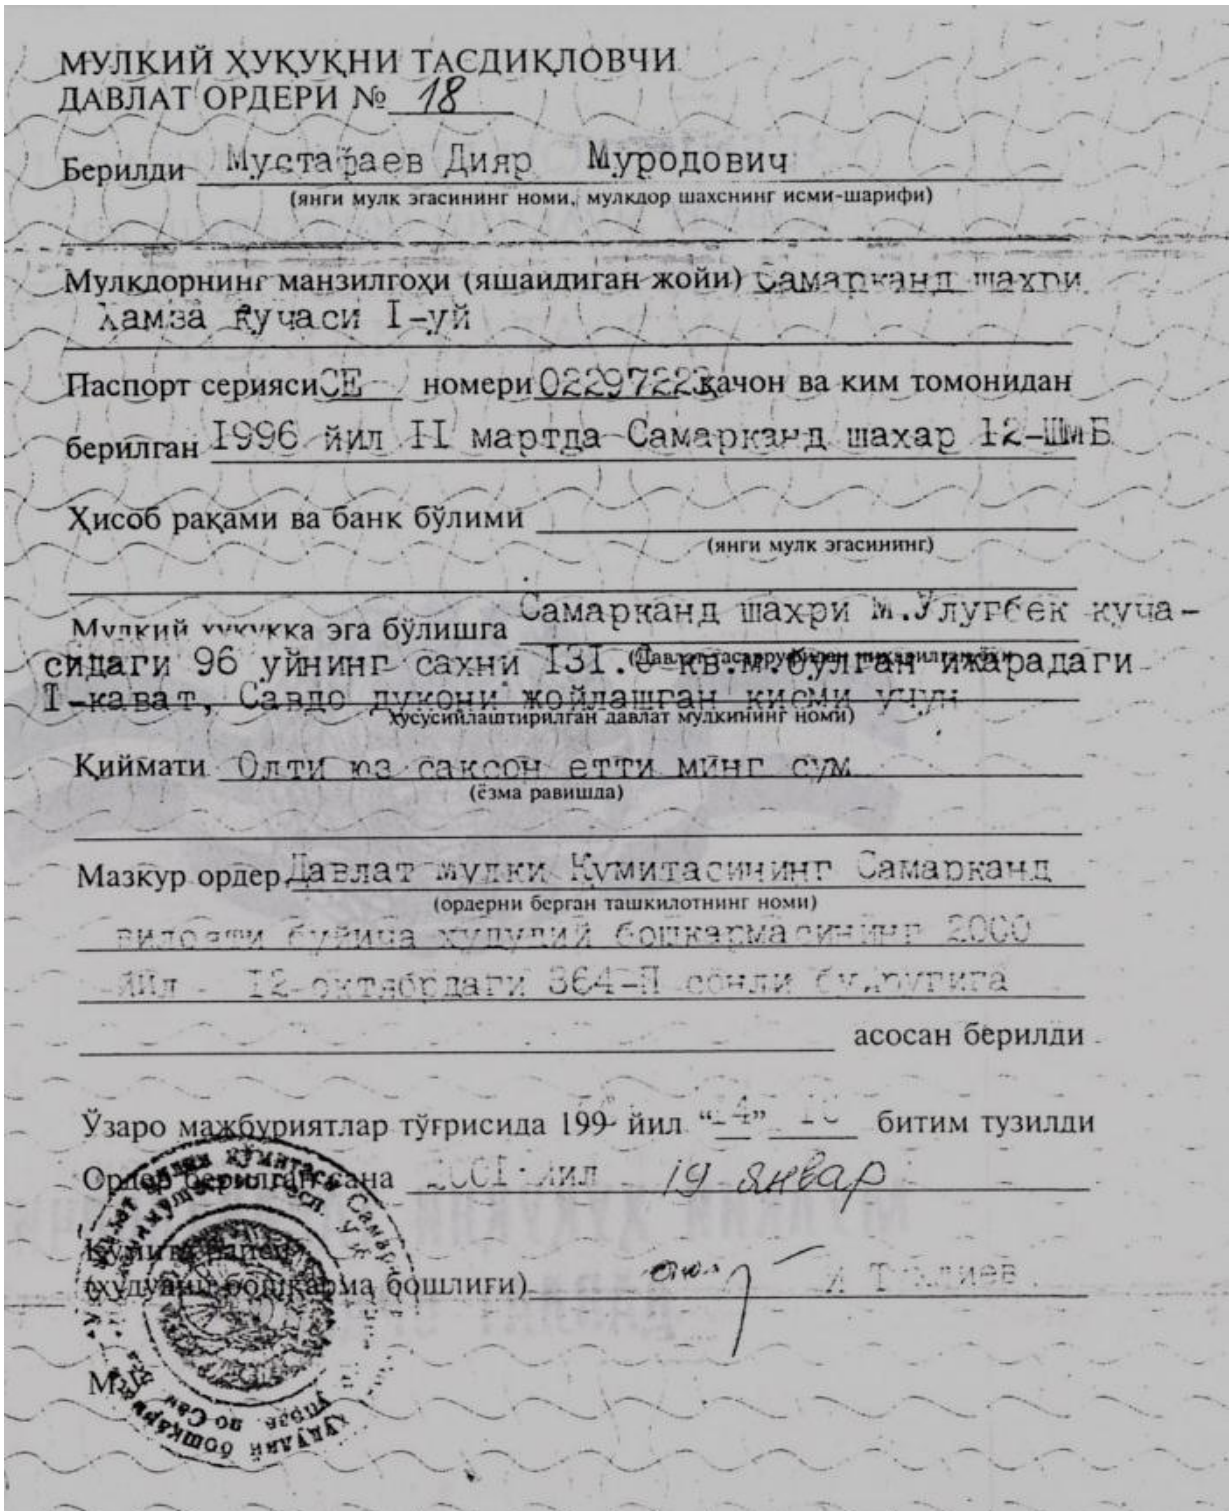 МУЛКИЙ ҲУҚУҚНИ ТАСДИҚЛОВЧИ
ДАВЛАТ ОРДЕРИ № 18
Берилди Мустафаев Дияр Муродович
(янги мулк эгасининг номи, мулкдор шахснинг исми-шарифи)
Мулкдорнинг манзилгоҳи (яшайдиган жойи) Самарканд шахри
Хамза кучаси I-уй
Паспорт серияси СЕ номери 02297223 қачон ва ким томонидан
берилган 1996 йил II мартда Самарканд шахар 12-ШмБ
Ҳисоб рақами ва банк бўлими
(янги мулк эгасининг)
Мулкий ҳуқуққа эга бўлишга Самарканд шахри М.Улугбек куча-
сидаги 96 уйнинг сахни 131. кв.м.булган ижарадаги
I-кават, Савдо дукони жойлашган кисми учун
хусусийлаштирилган давлат мулкининг номи)
Қиймати Олти юз саксон етти минг сум
(ёзма равишда)
Мазкур ордер Давлат мулки Кумитасининг Самарканд
(ордерни берган ташкилотнинг номи)
вилояти буйича худудий бошкармасининг 2000
йил 12 октябрдаги 364-П сонли буйругига
асосан берилди
Ўзаро мажбуриятлар тўғрисида 199 йил “14” 10 битим тузилди
Ордер берилган сана 2001 йил 19 январ
Қўмита раиси
(ҳудудий бошқарма бошлиғи)
М